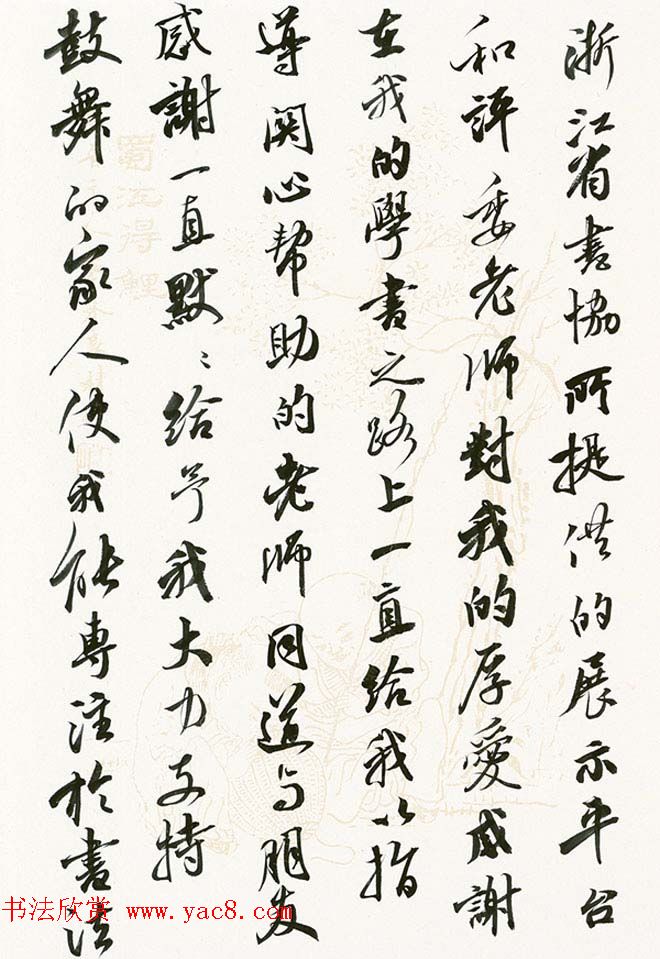 浙江省書協所提供的展示平台
和評委老师對我的厚愛感謝
在我的學書之路上一直給我以指
導関心帮助的老师同道与朋友
感謝一直默〻給予我大力支持
鼓舞的家人使我能專注於書法
蜀江得鯉
书法欣赏 www.yac8.com